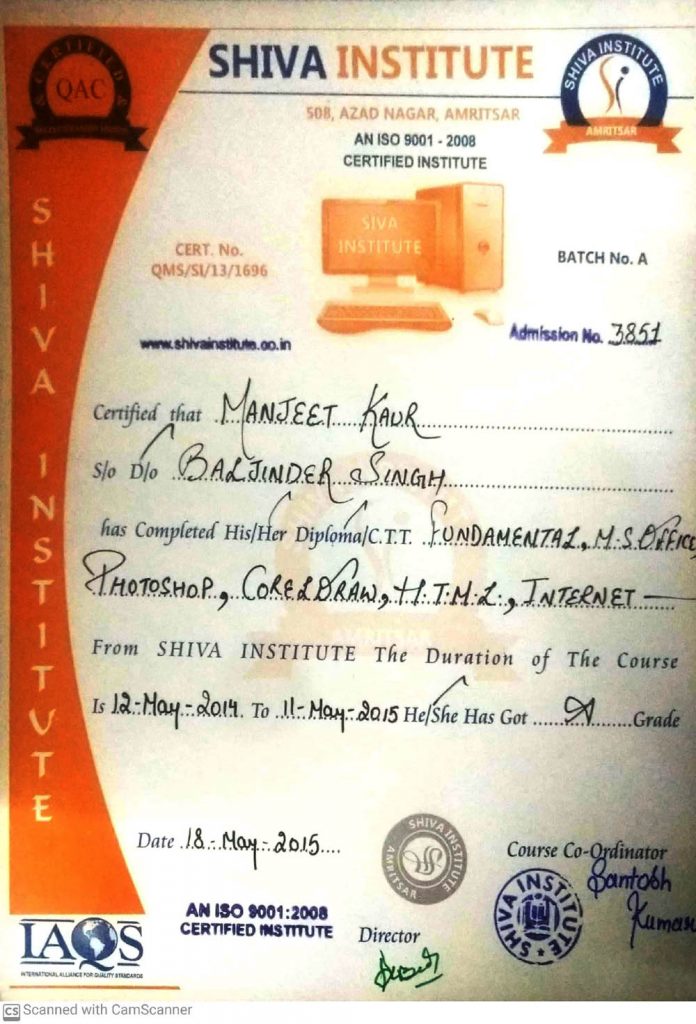 CERTIFIED
QAC
SHIVA INSTITUTE
508, AZAD NAGAR, AMRITSAR
AN ISO 9001 - 2008
CERTIFIED INSTITUTE
SHIVA INSTITUTE
AMRITSAR
SHIVA INSTITUTE
SIVA
INSTITUTE
CERT. No.
QMS/SI/13/1696
BATCH No. A
www.shivainstitute.co.in
Admission No. 3851
Certified that MANJEET KAUR
S/o D/o BALJINDER SINGH
has Completed His/Her Diploma/C.T.T. FUNDAMENTAL, M.S.OFFICE,
PHOTOSHOP, CORELDRAW, H.T.M.L., INTERNET
From SHIVA INSTITUTE The Duration of The Course
Is 12-May-2014 To 11-May-2015 He/She Has Got A Grade
Date 18-May-2015
SHIVA INSTITUTE
AMRITSAR
Course Co-Ordinator
Santosh
Kumar
SHIVA INSTITUTE
AN ISO 9001:2008
CERTIFIED INSTITUTE
Director
IAQS
INTERNATIONAL ALLIANCE FOR QUALITY STANDARDS
CS Scanned with CamScanner